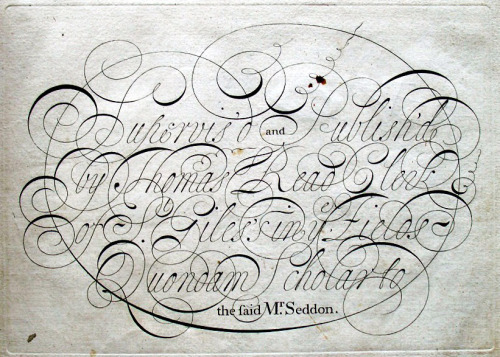 Supervis'd and Publish'd
by Thomas Read Clerk
of St. Giles's in ye. Fields
Quondam Scholar to
the ſaid Mr. Seddon.